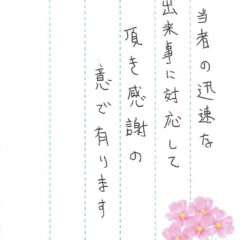 当者の迅速な
出来事に対応して
頂き感謝の
意で有ります